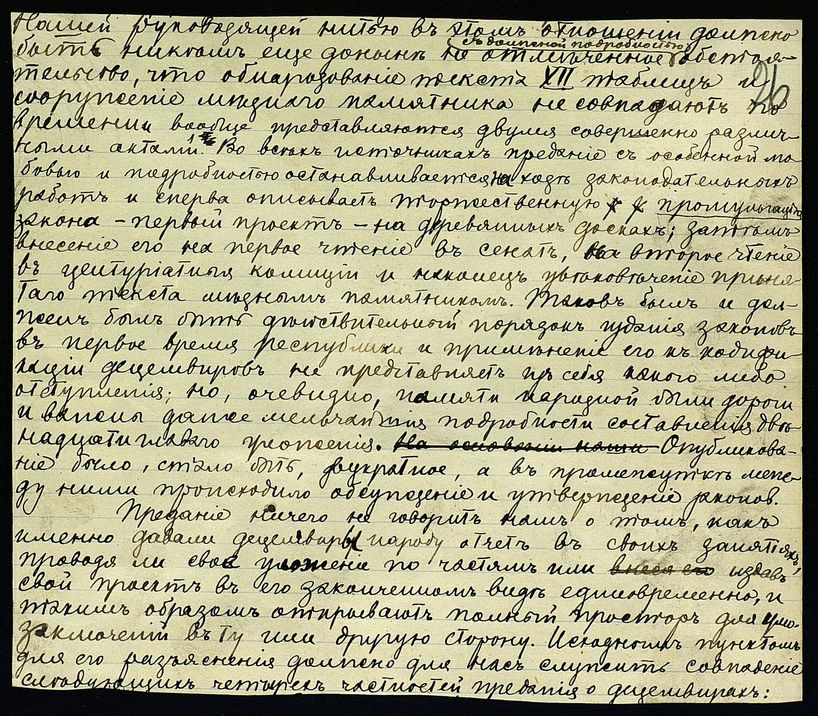 Нашей руководящей нитью въ этомъ отношеніи должно
быть никѣмъ еще донынѣ не съ должной подробностью отмѣченное обстоя-
тельство, что обнародованіе текста XII таблицъ и 26
сооруженіе мѣднаго памятника не совпадаютъ по
времени и вообще представляются двумя совершенно различ-
ными актами. Во всѣхъ источникахъ преданіе съ особенной лю-
бовью и подробностью останавливается на ходѣ законодательныхъ
работъ и сперва описываетъ торжественную промульгацію
закона – первый проектъ – на деревянныхъ доскахъ; затѣмъ
внесеніе его на первое чтеніе въ сенатъ, на второе чтеніе
въ центуріатныя комиціи и наконецъ увѣковѣченіе приня-
таго текста мѣднымъ памятникомъ. Таковъ былъ и дол-
женъ былъ быть дѣйствительный порядокъ изданія законовъ
въ первое время республики и примѣненіе его къ кодифи-
каціи децемвировъ не представляетъ изъ себя какого либо
отступленія; но, очевидно, памяти народной были дороги
и важны даже мельчайшія подробности составленія двѣ-
надцатиглаваго уложенія. На основаніи наши Опубликова-
ніе было, стало быть, двукратное, а въ промежуткѣ меж-
ду ними происходило обсужденіе и утвержденіе законовъ.
Преданіе ничего не говоритъ намъ о томъ, какъ
именно давали децемвиры народу отчетъ въ своихъ занятіяхъ,
проводя ли свое уложеніе по частямъ или внеся его издавъ
свой проектъ въ его законченномъ видѣ единовременно, и
такимъ образомъ открываютъ полный просторъ для умо-
заключеній въ ту или другую сторону. Исходнымъ пунктомъ
для его разъясненія должно для насъ служить совпаденіе
слѣдующихъ четырехъ частностей преданія о децемвирахъ: